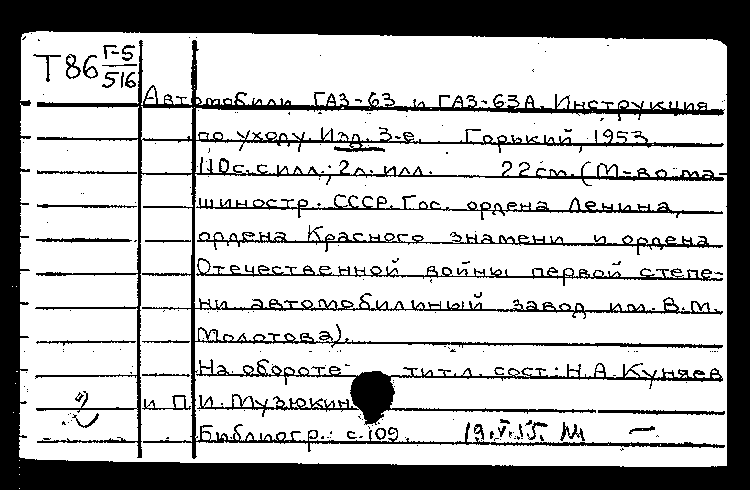 Т86 Г-5/516
Автомобили ГАЗ-63 и ГАЗ-63А. Инструкция
по уходу Изд. 3-е. Горький, 1953
110с. с илл.; 2л. илл. 22см. (М-во ма-
шиностр. СССР. Гос. ордена Ленина,
ордена Красного знамени и ордена
Отечественной войны первой степе-
ни автомобильный завод им. В.М.
Молотова).
На обороте тит.л. сост: Н.А. Куняев
2 и П.И. Музюкин
Библиогр.: с.109. 19.V.55. М —